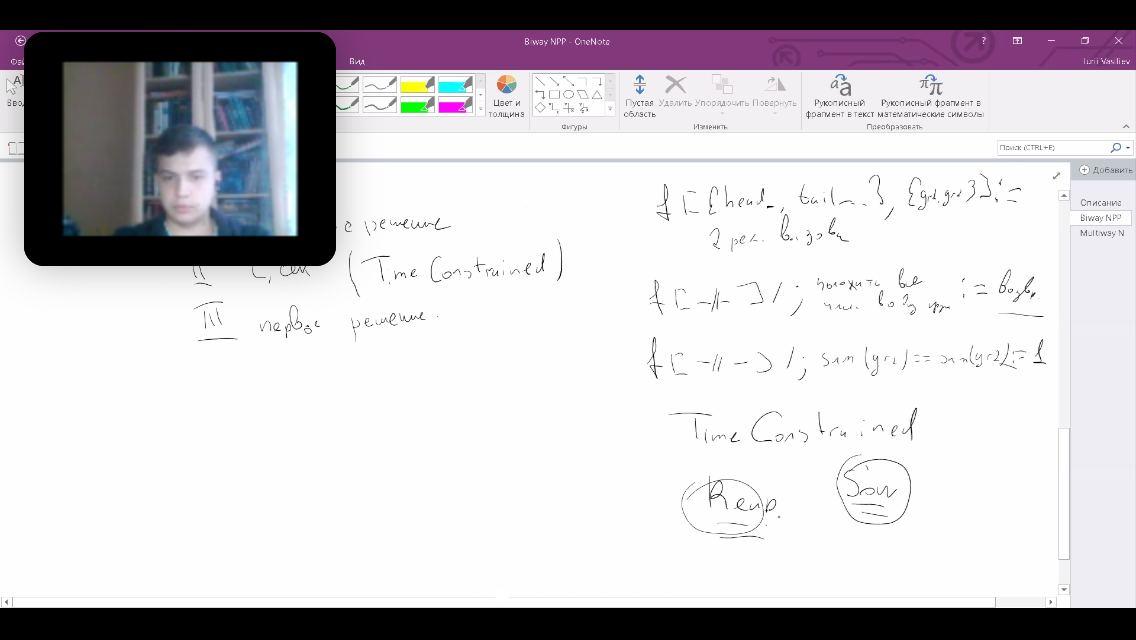 Biway NPP - OneNote
Вид
Iurii Vasiliev
Цвет и
толщина
Фигуры
Пустая
область
Удалить
Упорядочить
Повернуть
Изменить
Рукописный
фрагмент в текст
Рукописный фрагмент в
математические символы
Преобразовать
Поиск (CTRL+E)
Добавить
Описание
Biway NPP
Multiway N
решение
II
(TimeConstrained)
III первое решение.
f[{head_, tail__}, {gr1, gr2}] :=
2 рек. вызова
f[ -//- ] /;
:=
f[ -//- ] /; sum(gr1) == sum(gr2) := 1
TimeConstrained
Sow